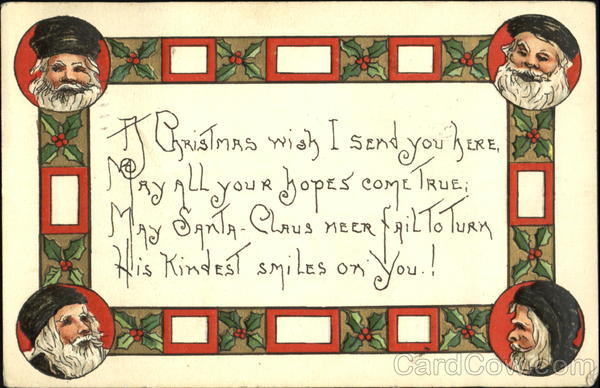 A Christmas wish I send you here,
May all your hopes come true;
May Santa-Claus neer fail to turn
His kindest smiles on You.!
CardCow.com